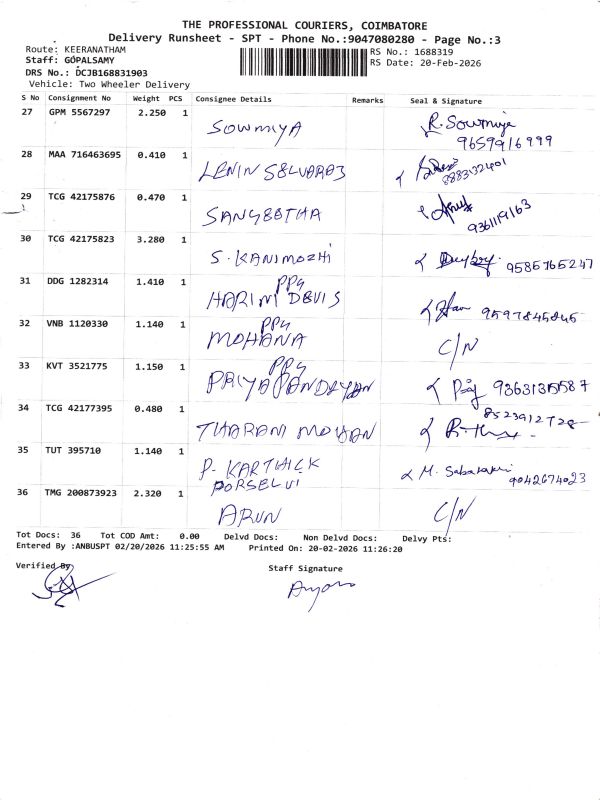 THE PROFESSIONAL COURIERS, COIMBATORE
Delivery Runsheet - SPT - Phone No.:9047080280 - Page No.:3
Route: KEERANATHAM
RS No.: 1688319
Staff: GOPALSAMY
RS Date: 20-Feb-2026
DRS No.: DCJB168831903
Vehicle: Two Wheeler Delivery
S No Consignment No Weight PCS Consignee Details Remarks Seal & Signature
27 GPM 5567297 2.250 1 SOWMIYA R. Sowmiya
9659916999
28 MAA 716463695 0.410 1 LENIN SELVARAJ
29 TCG 42175876 0.470 1 SANGEETHA 9361119163
30 TCG 42175823 3.280 1 S. KANIMOZHI 9585765247
31 DDG 1282314 1.410 1 PPG
HARINI DEVI S
32 VNB 1120330 1.140 1 PPG
MOHANA C/N
33 KVT 3521775 1.150 1 PPG
PRIYA PANDIYAN
34 TCG 42177395 0.480 1 THARANI MOHAN
35 TUT 395710 1.140 1 P. KARTHICK
PORSELVI 9042674023
36 TMG 200873923 2.320 1 ARUN C/N
Tot Docs: 36 Tot COD Amt: 0.00 Delvd Docs: Non Delvd Docs: Delvy Pts:
Entered By :ANBUSPT 02/20/2026 11:25:55 AM Printed On: 20-02-2026 11:26:20
Verified By
Staff Signature